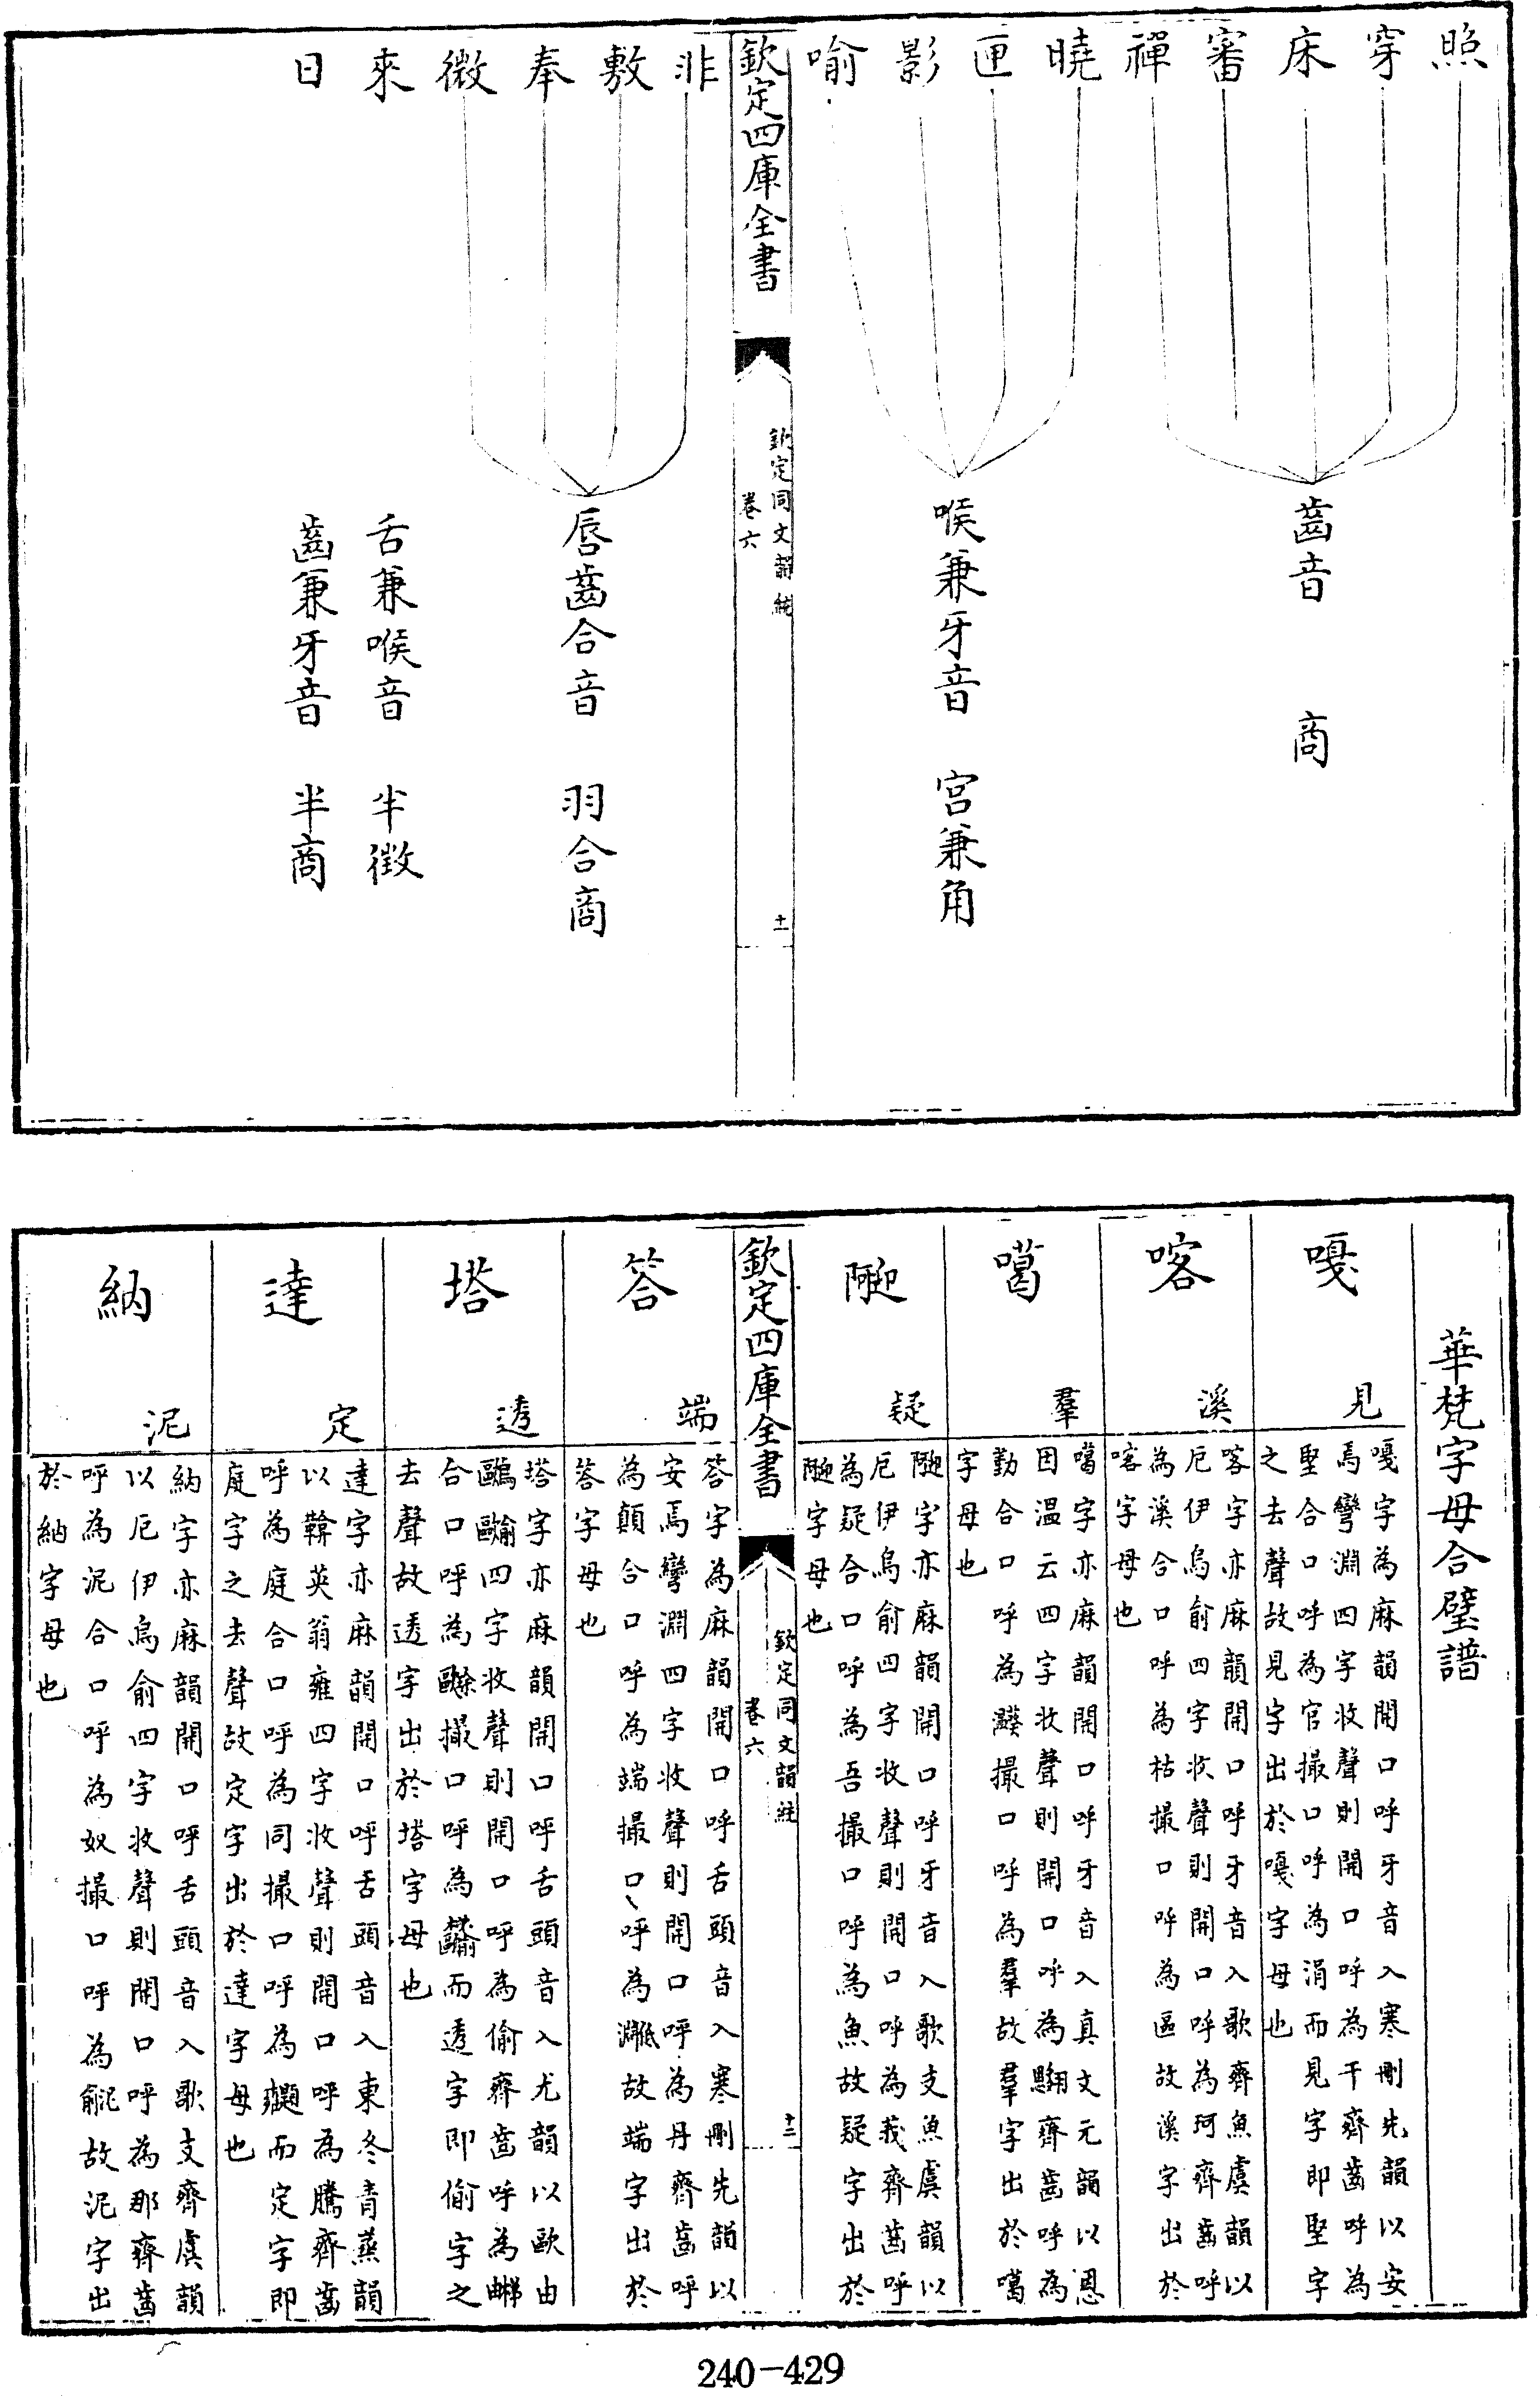 照
穿
床
審
禪
齒音 商
曉
匣
影
喻
喉兼牙音 宮兼角
欽定四庫全書
欽定同文韻統
卷六
十一
非
敷
奉
微
唇齒合音 羽合商
來
舌兼喉音 半徵
日
齒兼牙音 半商
華梵字母合璧譜
嘎
見
嘎字為麻韻開口呼牙音入寒刪先韻以安
焉彎淵四字收聲則開口呼為干齊齒呼為
堅合口呼為官撮口呼為涓而見字即堅字
之去聲故見字出於嘎字母也
喀
溪
喀字亦麻韻開口呼牙音入歌齊魚虞韻以
厄伊烏俞四字收聲則開口呼為珂齊齒呼
為溪合口呼為枯撮口呼為區故溪字出於
喀字母也
噶
羣
噶字亦麻韻開口呼牙音入真文元韻以恩
因温云四字收聲則開口呼為齊齒呼為
勤合口呼為撮口呼為羣故羣字出於噶
字母也
疑
字亦麻韻開口呼牙音入歌支魚虞韻以
厄伊烏俞四字收聲則開口呼為莪齊齒呼
為疑合口呼為吾撮口呼為魚故疑字出於
字母也
欽定四庫全書
欽定同文韻統
卷六
十二
答
端
答字為麻韻開口呼舌頭音入寒刪先韻以
安焉彎淵四字收聲則開口呼為丹齊齒呼
為顛合口呼為端撮口呼為故端字出於
答字母也
塔
透
塔字亦麻韻開口呼舌頭音入尤韻以歐由
四字收聲則開口呼為偷齊齒呼為
合口呼為撮口呼為而透字即偷字之
去聲故透字出於塔字母也
達
定
達字亦麻韻開口呼舌頭音入東冬青蒸韻
以鞥英翁雍四字收聲則開口呼為騰齊齒
呼為庭合口呼為同撮口呼為而定字即
庭字之去聲故定字出於達字母也
納
泥
納字亦麻韻開口呼舌頭音入歌支齊虞韻
以厄伊烏俞四字收聲則開口呼為那齊齒
呼為泥合口呼為奴撮口呼為故泥字出
於納字母也
240-429